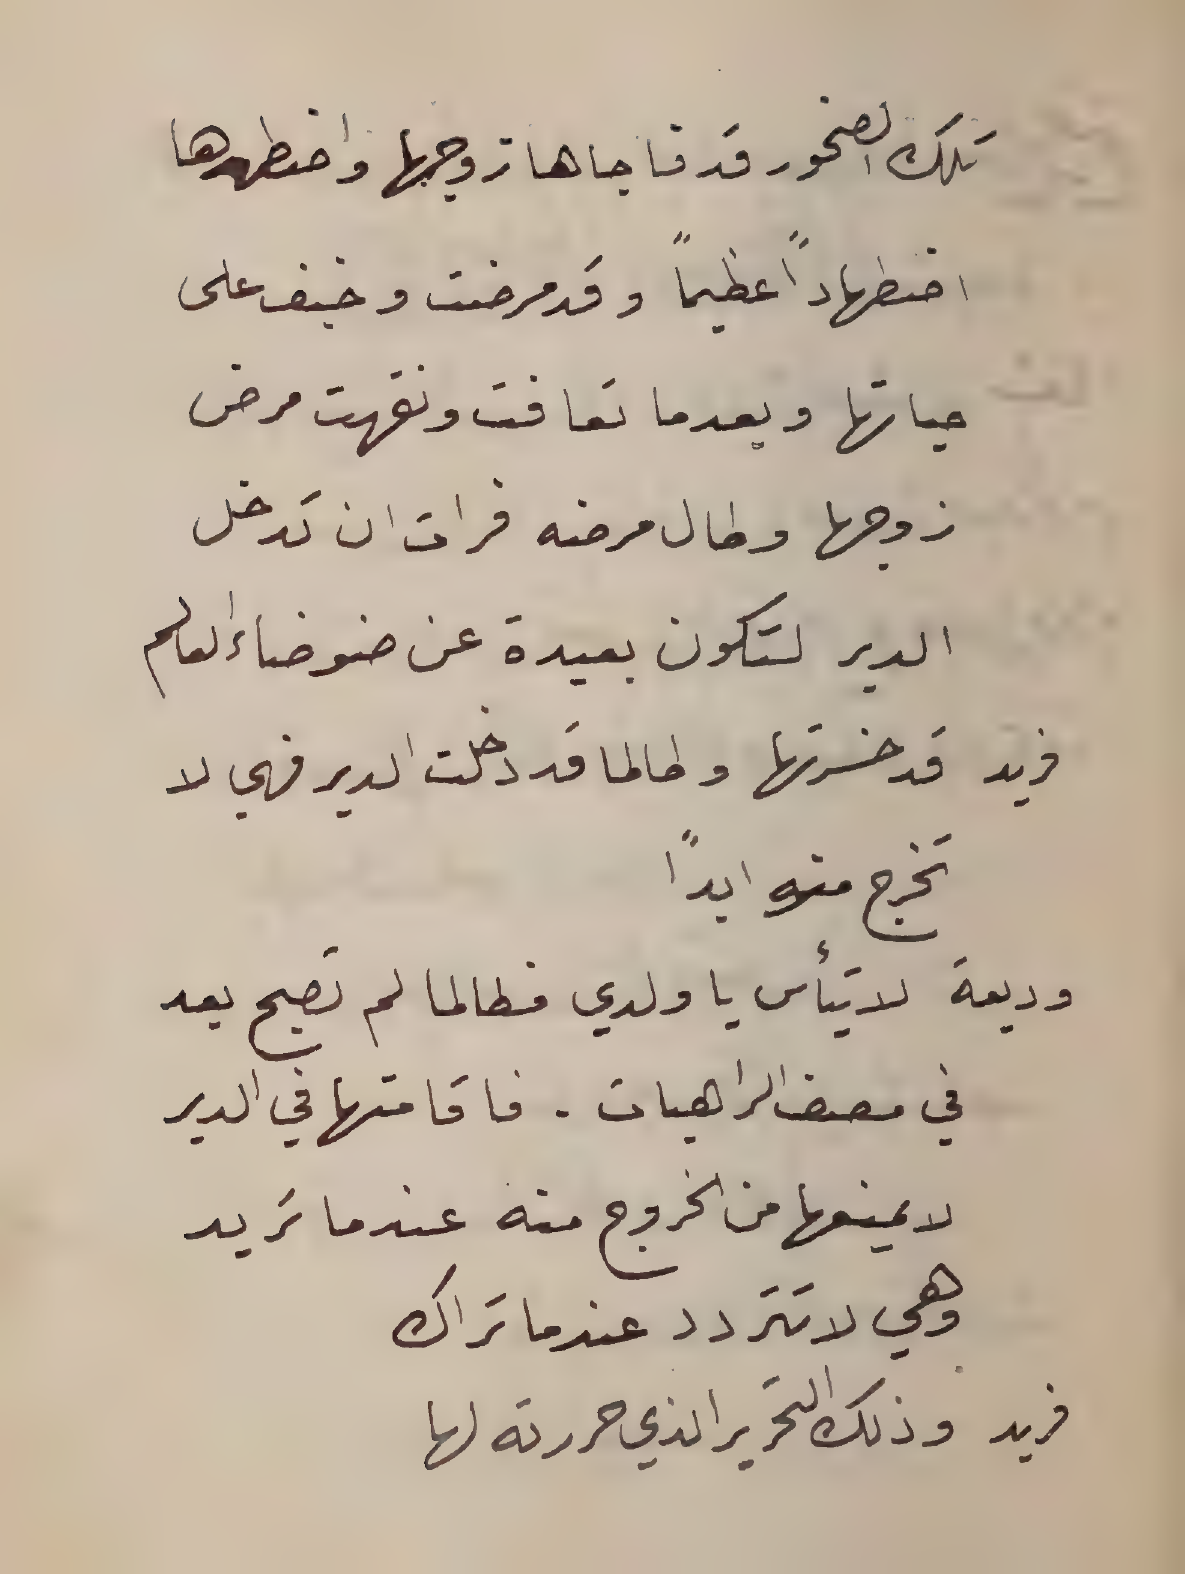 تلك الصخور قد فاجاها زوجها واضطهدها
اضطهاداً عظيماً وقد مرضت وخيف على
حياتها وبعدما تعافت ونقهت مرض
زوجها وطال مرضه فرات ان تدخل
الدير لتكون بعيدة عن ضوضاء العالم
فريد قد خسرتها وطالما قد دخلت الدير فهي لا
تخرج منه ابداً
وديعة لا تيأس يا ولدي فطالما لم تصبح بعد
في مصف الراهبات . فاقامتها في الدير
لا يمنعها من الخروج منه عندما تريد
وهي لا تتردد عندما تراك
فريد وذلك التحرير الذي حررته لها